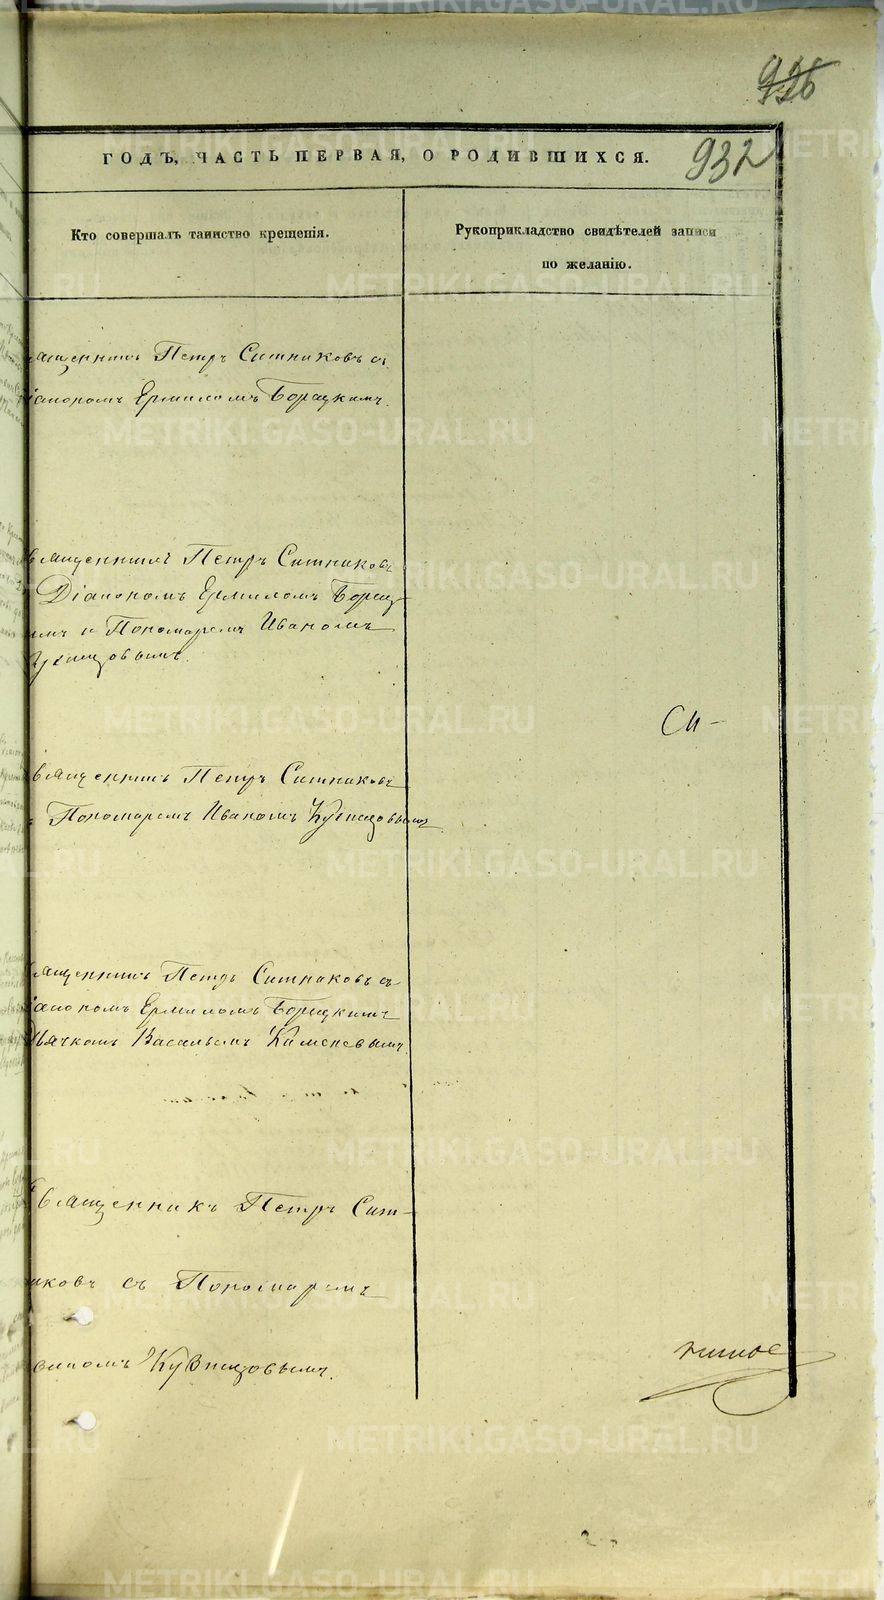 926
932
ГОДЪ, ЧАСТЬ ПЕРВАЯ, О РОДИВШИХСЯ.
Кто совершалъ таинство крещенія.
Рукоприкладство свидѣтелей записи
по желанію.
ященникъ Петръ Ситниковъ съ
іакономъ Ермиломъ
вященникъ Петръ Ситниковъ
Діакономъ Ермиломъ
имъ и Пономаремъ Иваномъ
Си-
вященникъ Петръ Ситниковъ
Пономаремъ Иваномъ Кузнецовымъ
ященникъ Петръ Ситниковъ съ
іакономъ Ермиломъ
ьячкомъ Васильемъ Каменевымъ
вященникъ Петръ Сит-
никовъ съ Пономаремъ
ваномъ Кузнецовымъ.
METRIKI.GASO-URAL.RU